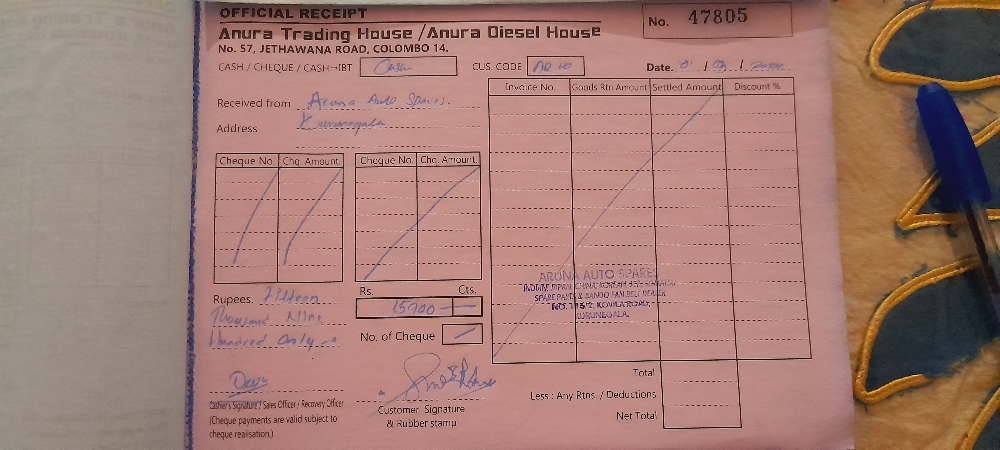 OFFICIAL RECEIPT
No. 47805
Anura Trading House / Anura Diesel House
No. 57, JETHAWANA ROAD, COLOMBO 14.
CASH / CHEQUE / CASH-IBT Cash
CUS. CODE
Date.
Received from Aruna Auto Spares.
Address Kurunegala
Cheque No. Chq. Amount.
Cheque No. Chq. Amount.
Invoice No. Goods Rtn Amount Settled Amount Discount %
Rupees. Fifteen
Thousand Nine
Hundred only
Rs. Cts.
15900 —
No. of Cheque
ARUNA AUTO SPARES
SPARE PARTS & BANDO FAN BELT DEALER
KURUNEGALA.
Total
Less : Any Rtns. / Deductions
Net Total
Cashier's Signature / Sales Officer / Recovery Officer
(Cheque payments are valid subject to
cheque realisation.)
Customer Signature
& Rubber stamp